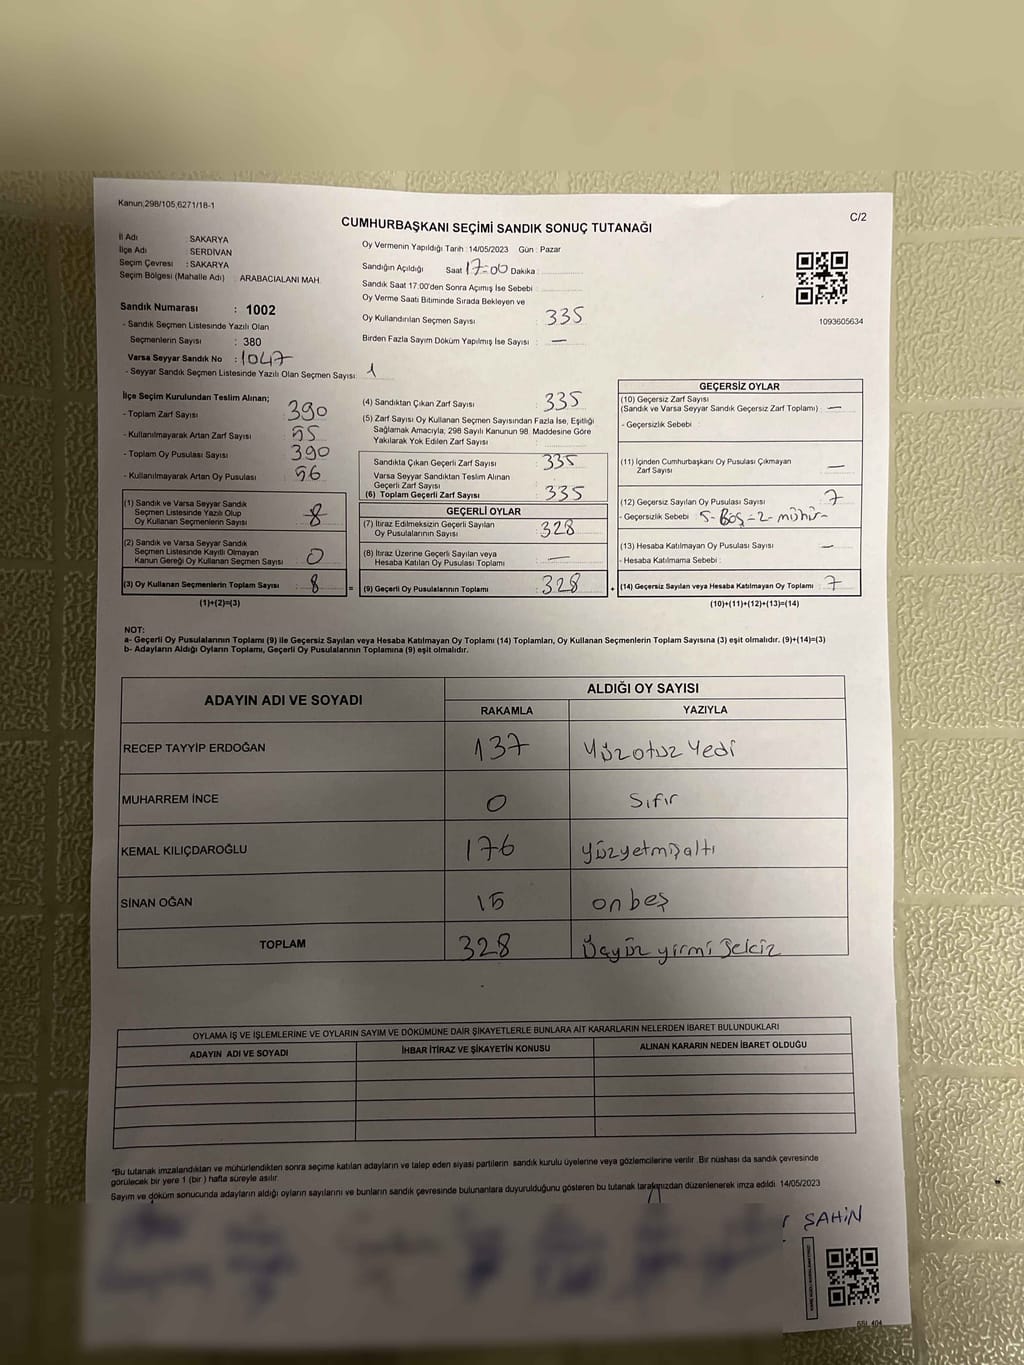 Kanun;298/105,6271/18-1
C/2
CUMHURBAŞKANI SEÇİMİ SANDIK SONUÇ TUTANAĞI
İl Adı : SAKARYA
İlçe Adı : SERDİVAN
Seçim Çevresi : SAKARYA
Seçim Bölgesi (Mahalle Adı) : ARABACIALANI MAH.
Sandık Numarası : 1002
- Sandık Seçmen Listesinde Yazılı Olan
Seçmenlerin Sayısı : 380
Varsa Seyyar Sandık No : 1047
- Seyyar Sandık Seçmen Listesinde Yazılı Olan Seçmen Sayısı: 1
Oy Vermenin Yapıldığı Tarih :14/05/2023 Gün : Pazar
Sandığın Açıldığı Saat 17:00 Dakika :
Sandık Saat 17:00'den Sonra Açımış İse Sebebi :
Oy Verme Saati Bitiminde Sırada Bekleyen ve
Oy Kullandırılan Seçmen Sayısı : 335
Birden Fazla Sayım Döküm Yapılmış İse Sayısı : —
1093605634
İlçe Seçim Kurulundan Teslim Alınan;
- Toplam Zarf Sayısı : 390
- Kullanılmayarak Artan Zarf Sayısı : 55
- Toplam Oy Pusulası Sayısı : 390
- Kullanılmayarak Artan Oy Pusulası : 56
(1) Sandık ve Varsa Seyyar Sandık
Seçmen Listesinde Yazılı Olup
Oy Kullanan Seçmenlerin Sayısı : 8
(2) Sandık ve Varsa Seyyar Sandık
Seçmen Listesinde Kayıtlı Olmayan
Kanun Gereği Oy Kullanan Seçmen Sayısı : 0
(3) Oy Kullanan Seçmenlerin Toplam Sayısı : 8 =
(1)+(2)=(3)
(4) Sandıktan Çıkan Zarf Sayısı : 335
(5) Zarf Sayısı Oy Kullanan Seçmen Sayısından Fazla İse, Eşitliği
Sağlamak Amacıyla; 298 Sayılı Kanunun 98. Maddesine Göre
Yakılarak Yok Edilen Zarf Sayısı :
Sandıkta Çıkan Geçerli Zarf Sayısı : 335
Varsa Seyyar Sandıktan Teslim Alınan
Geçerli Zarf Sayısı :
(6) Toplam Geçerli Zarf Sayısı : 335
GEÇERLİ OYLAR
(7) İtiraz Edilmeksizin Geçerli Sayılan
Oy Pusulalarının Sayısı : 328
(8) İtiraz Üzerine Geçerli Sayılan veya
Hesaba Katılan Oy Pusulası Toplamı : —
(9) Geçerli Oy Pusulalarının Toplamı : 328 +
GEÇERSİZ OYLAR
(10) Geçersiz Zarf Sayısı
(Sandık ve Varsa Seyyar Sandık Geçersiz Zarf Toplamı) : —
- Geçersizlik Sebebi :
(11) İçinden Cumhurbaşkanı Oy Pusulası Çıkmayan
Zarf Sayısı : —
(12) Geçersiz Sayılan Oy Pusulası Sayısı : 7
- Geçersizlik Sebebi : 5-Boş-2-mühür-
(13) Hesaba Katılmayan Oy Pusulası Sayısı : —
- Hesaba Katılmama Sebebi :
(14) Geçersiz Sayılan veya Hesaba Katılmayan Oy Toplamı : 7
(10)+(11)+(12)+(13)=(14)
NOT:
a- Geçerli Oy Pusulalarının Toplamı (9) ile Geçersiz Sayılan veya Hesaba Katılmayan Oy Toplamı (14) Toplamları, Oy Kullanan Seçmenlerin Toplam Sayısına (3) eşit olmalıdır. (9)+(14)=(3)
b- Adayların Aldığı Oyların Toplamı, Geçerli Oy Pusulalarının Toplamına (9) eşit olmalıdır.
ADAYIN ADI VE SOYADI
ALDIĞI OY SAYISI
RAKAMLA YAZIYLA
RECEP TAYYİP ERDOĞAN 137 Yüzotuz Yedi
MUHARREM İNCE 0 Sıfır
KEMAL KILIÇDAROĞLU 176 Yüzyetmişaltı
SİNAN OĞAN 15 onbeş
TOPLAM 328 Üçyüz yirmi Sekiz
OYLAMA İŞ VE İŞLEMLERİNE VE OYLARIN SAYIM VE DÖKÜMÜNE DAİR ŞİKAYETLERLE BUNLARA AİT KARARLARIN NELERDEN İBARET BULUNDUKLARI
ADAYIN ADI VE SOYADI İHBAR İTİRAZ VE ŞİKAYETİN KONUSU ALINAN KARARIN NEDEN İBARET OLDUĞU
*Bu tutanak imzalandıktan ve mühürlendikten sonra seçime katılan adayların ve talep eden siyasi partilerin sandık kurulu üyelerine veya gözlemcilerine verilir. Bir nüshası da sandık çevresinde
görülecek bir yere 1 (bir ) hafta süreyle asılır.
Sayım ve döküm sonucunda adayların aldığı oyların sayılarını ve bunların sandık çevresinde bulunanlara duyurulduğunu gösteren bu tutanak tarafımızdan düzenlenerek imza edildi. 14/05/2023
ŞAHİN